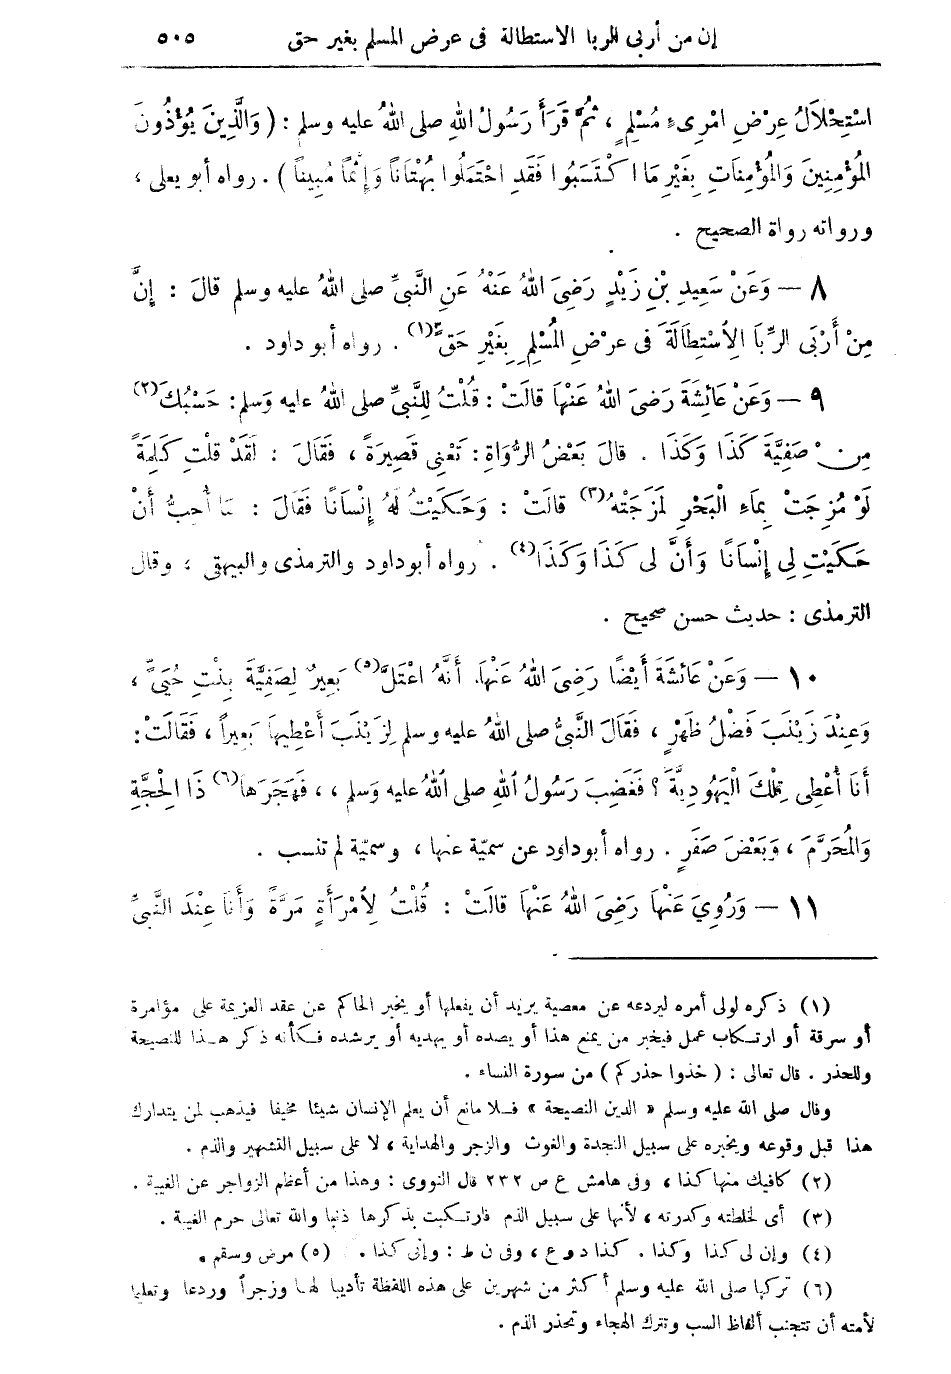 إن من أربى الربا الاستطالة فى عرض المسلم بغير حق ٥٠٥
اسْتِحْلَالُ عِرْضِ امْرِىءٍ مُسْلِمٍ ، ثُمَّ قَرَأَ رَسُولُ اللهِ صلى اللهُ عليه وسلم : ( وَالَّذِينَ يُؤْذُونَ
المُؤْمِنِينَ وَالمُؤْمِنَاتِ بِغَيْرِ مَا اكْتَسَبُوا فَقَدِ احْتَمَلُوا بُهْتَاناً وَإِثْماً مُبِيناً ) . رواه أبو يعلى ،
ورواته رواة الصحيح .
٨ — وَعَنْ سَعِيدِ بْنِ زَيْدٍ رَضِىَ اللهُ عَنْهُ عَنِ النَّبِىِّ صلى اللهُ عليه وسلم قَالَ : إِنَّ
مِنْ أَرْبَى الرِّبَا الِاسْتِطَالَةَ فى عِرْضِ المُسْلِمِ بِغَيْرِ حَقٍّ (١) . رواه أبو داود .
٩ — وَعَنْ عَائِشَةَ رَضِىَ اللهُ عَنْهَا قَالَتْ : قُلْتُ لِلنَّبِىِّ صلى اللهُ عليه وَسلم : حَسْبُكَ (٢)
مِنْ صَفِيَّةَ كَذَا وَكَذَا . قَالَ بَعْضُ الرُّوَاةِ : تَعْنِى قَصِيرَةً ، فَقَالَ : لَقَدْ قُلْتِ كَلِمَةً
لَوْ مُزِجَتْ بِمَاءِ الْبَحْرِ لَمَزَجَتْهُ (٣) قَالَتْ : وَحَكَيْتُ لَهُ إِنْسَانًا فَقَالَ : مَا أُحِبُّ أَنْ
حَكَيْتِ لِى إِنْسَانًا وَأَنَّ لِى كَذَا وَكَذَا (٤) . رواه أبو داود والترمذى والبيهقى ، وقال
الترمذى : حديث حسن صحيح .
١٠ — وَعَنْ عَائِشَةَ أَيْضًا رَضِىَ اللهُ عَنْهَا. أَنَّهُ اعْتَلَّ (٥) بَعِيرٌ لِصَفِيَّةَ بِنْتِ حُيَىٍّ ،
وَعِنْدَ زَيْنَبَ فَضْلُ ظَهْرٍ ، فَقَالَ النَّبِىُّ صلى اللهُ عليه وسلم لِزَيْنَبَ أَعْطِيهَا بَعِيراً ، فَقَالَتْ :
أَنَا أُعْطِى تِلْكَ الْيَهُودِيَّةَ ؟ فَغَضِبَ رَسُولُ اللهِ صلى اللهُ عليه وَسلم ، ، فَهَجَرَهَا (٦) ذَا الْحِجَّةِ
وَالْمُحَرَّمَ ، وَبَعْضَ صَفَرٍ . رواه أبو داود عن سميّة عنها ، وسميّة لم تنسب .
١١ — وَرُوِىَ عَنْهَا رَضِىَ اللهُ عَنْهَا قَالَتْ : قُلْتُ لِامْرَأَةٍ مَرَّةً وَأَنَا عِنْدَ النَّبِىِّ
(١) ذكره لولى أمره ليردعه عن معصية يريد أن يفعلها أو يخبر الحاكم عن عقد العزيمة على مؤامرة
أو سرقة أو ارتكاب عمل فيخبر من يمنع هذا أو يصده أو يهديه أو يرشده فكأنه ذكر هذا للنصيحة
وللحذر . قال تعالى : ( خذوا حذركم ) من سورة النساء .
وقال صلى الله عليه وسلم « الدين النصيحة » فلا مانع أن يعلم الإنسان شيئا مخيفا فيذهب لمن يتدارك
هذا قبل وقوعه ويخبره على سبيل النجدة والغوث والزجر والهداية ، لا على سبيل التشهير والذم .
(٢) كافيك منها كذا ، وفى هامش ع ص ٢٣٢ قال النووى : وهذا من أعظم الزواجر عن الغيبة .
(٣) أى لخلطته وكدرته ، لأنها على سبيل الذم فارتكبت بذكرها ذنبا والله تعالى حرم الغيبة .
(٤) وإن لى كذا وكذا . كذا د و ع ، وفى ن ط : وإنى كذا . (٥) مرض وسقم .
(٦) تركها صلى الله عليه وسلم أكثر من شهرين على هذه اللفظة تأديبا لها وزجراً وردعا وتعليما
لأمته أن تتجنب ألفاظ السب وتترك الهجاء وتحذر الذم .